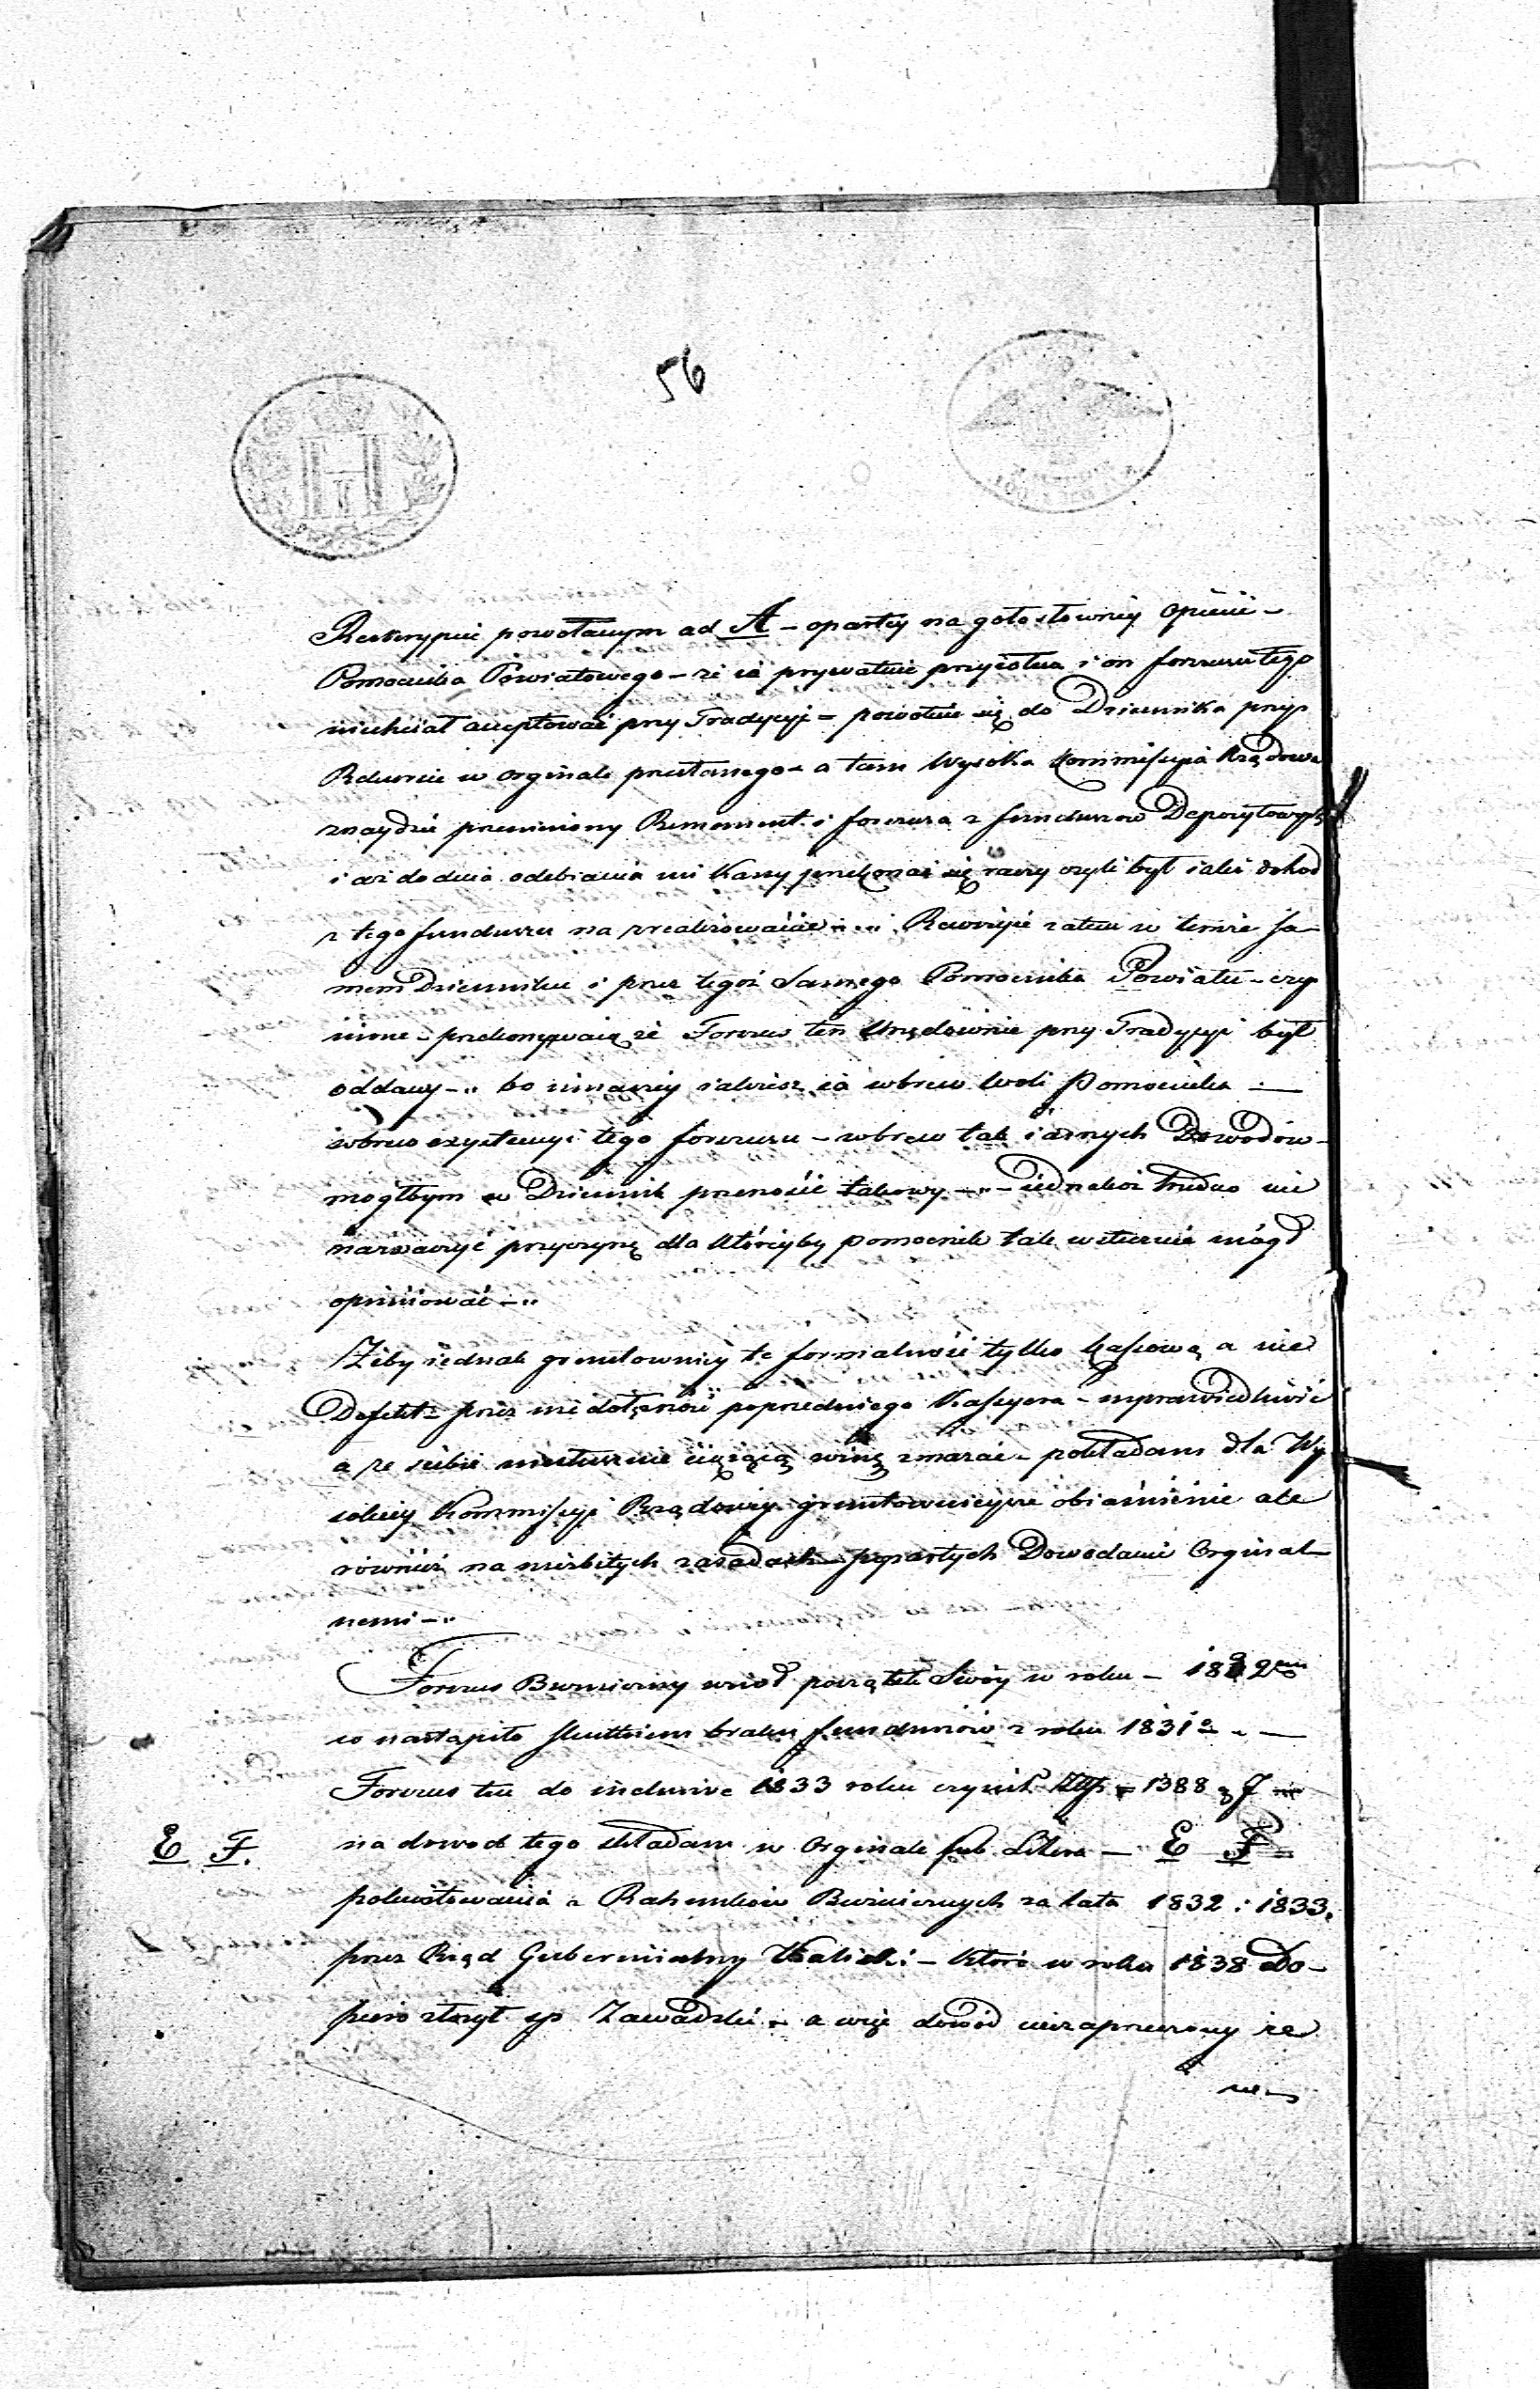 56
Reskrypcie powołanym ad A – opartey na gołosłowney Opinii –
Pomocnika Powiatowego – że ia prywatnie przyiołem i on forszusu tego
niechciał acceptować przy Tradycyi – powołuie się do Dziennika przy
w Orginale a tam Wysoka Kommissyia Rządowa
znaydzie przeniesiony Remanent i forszusa z funduszow Depozytowych
i aż do dnia odebrania mi Kassy przekonać się raczy czyli był iaki dohod
z tego funduszu na zrealizowanie –.. Rewizyie zatem w temże sa-
mem Dzienniku i przez tegoż Samego Pomocnika Powiatu – czy
nione – przekonywaią że Forszus ten Urzędownie przy Tradycyi był
oddany –.. bo inaczey iakżesz ia wbrew woli Pomocnika –
wbrew exystencyi tego forszusu – wbrew tak iasnych Dowodów –
mogłbym w Dziennik przenosić takowy –..– iednakoż trudno nie
naznaczyć przyczynę dla któreyby pomocnik tak mógł
opiniować –..
Żeby iednak gruntowniey te formalność tylko kassową a nie
Defekt – przez nie dołężność poprzedniego Kassyera – usprawiedliwić
a ze siebie niesłusznie ciężącą winę zmazać – pokładam dla Wy-
sokiey Kommissyi Rządowey gruntownieysze obiaśnienie ale
również na niezbitych zasadach – popartych Dowodami Orginal-
nemi –..
Forszus Burmieyny wziod początek Swóy w roku – 1832em
co nastąpiło skutkiem braku funduszów z roku 1831o –
Forszus ten do inclusive 1833 roku czynił Złp – 1388 g 7 –
E F. na dowod tego składam w Orginale sub Litera – E F –
pokwitowania z Rahunków za lata 1832 i 1833.
przez Rząd Gubernialny Kaliski – które w roku 1838 Do-
piero złożył Zawadzki – a więc dowód niezaprzeczony że